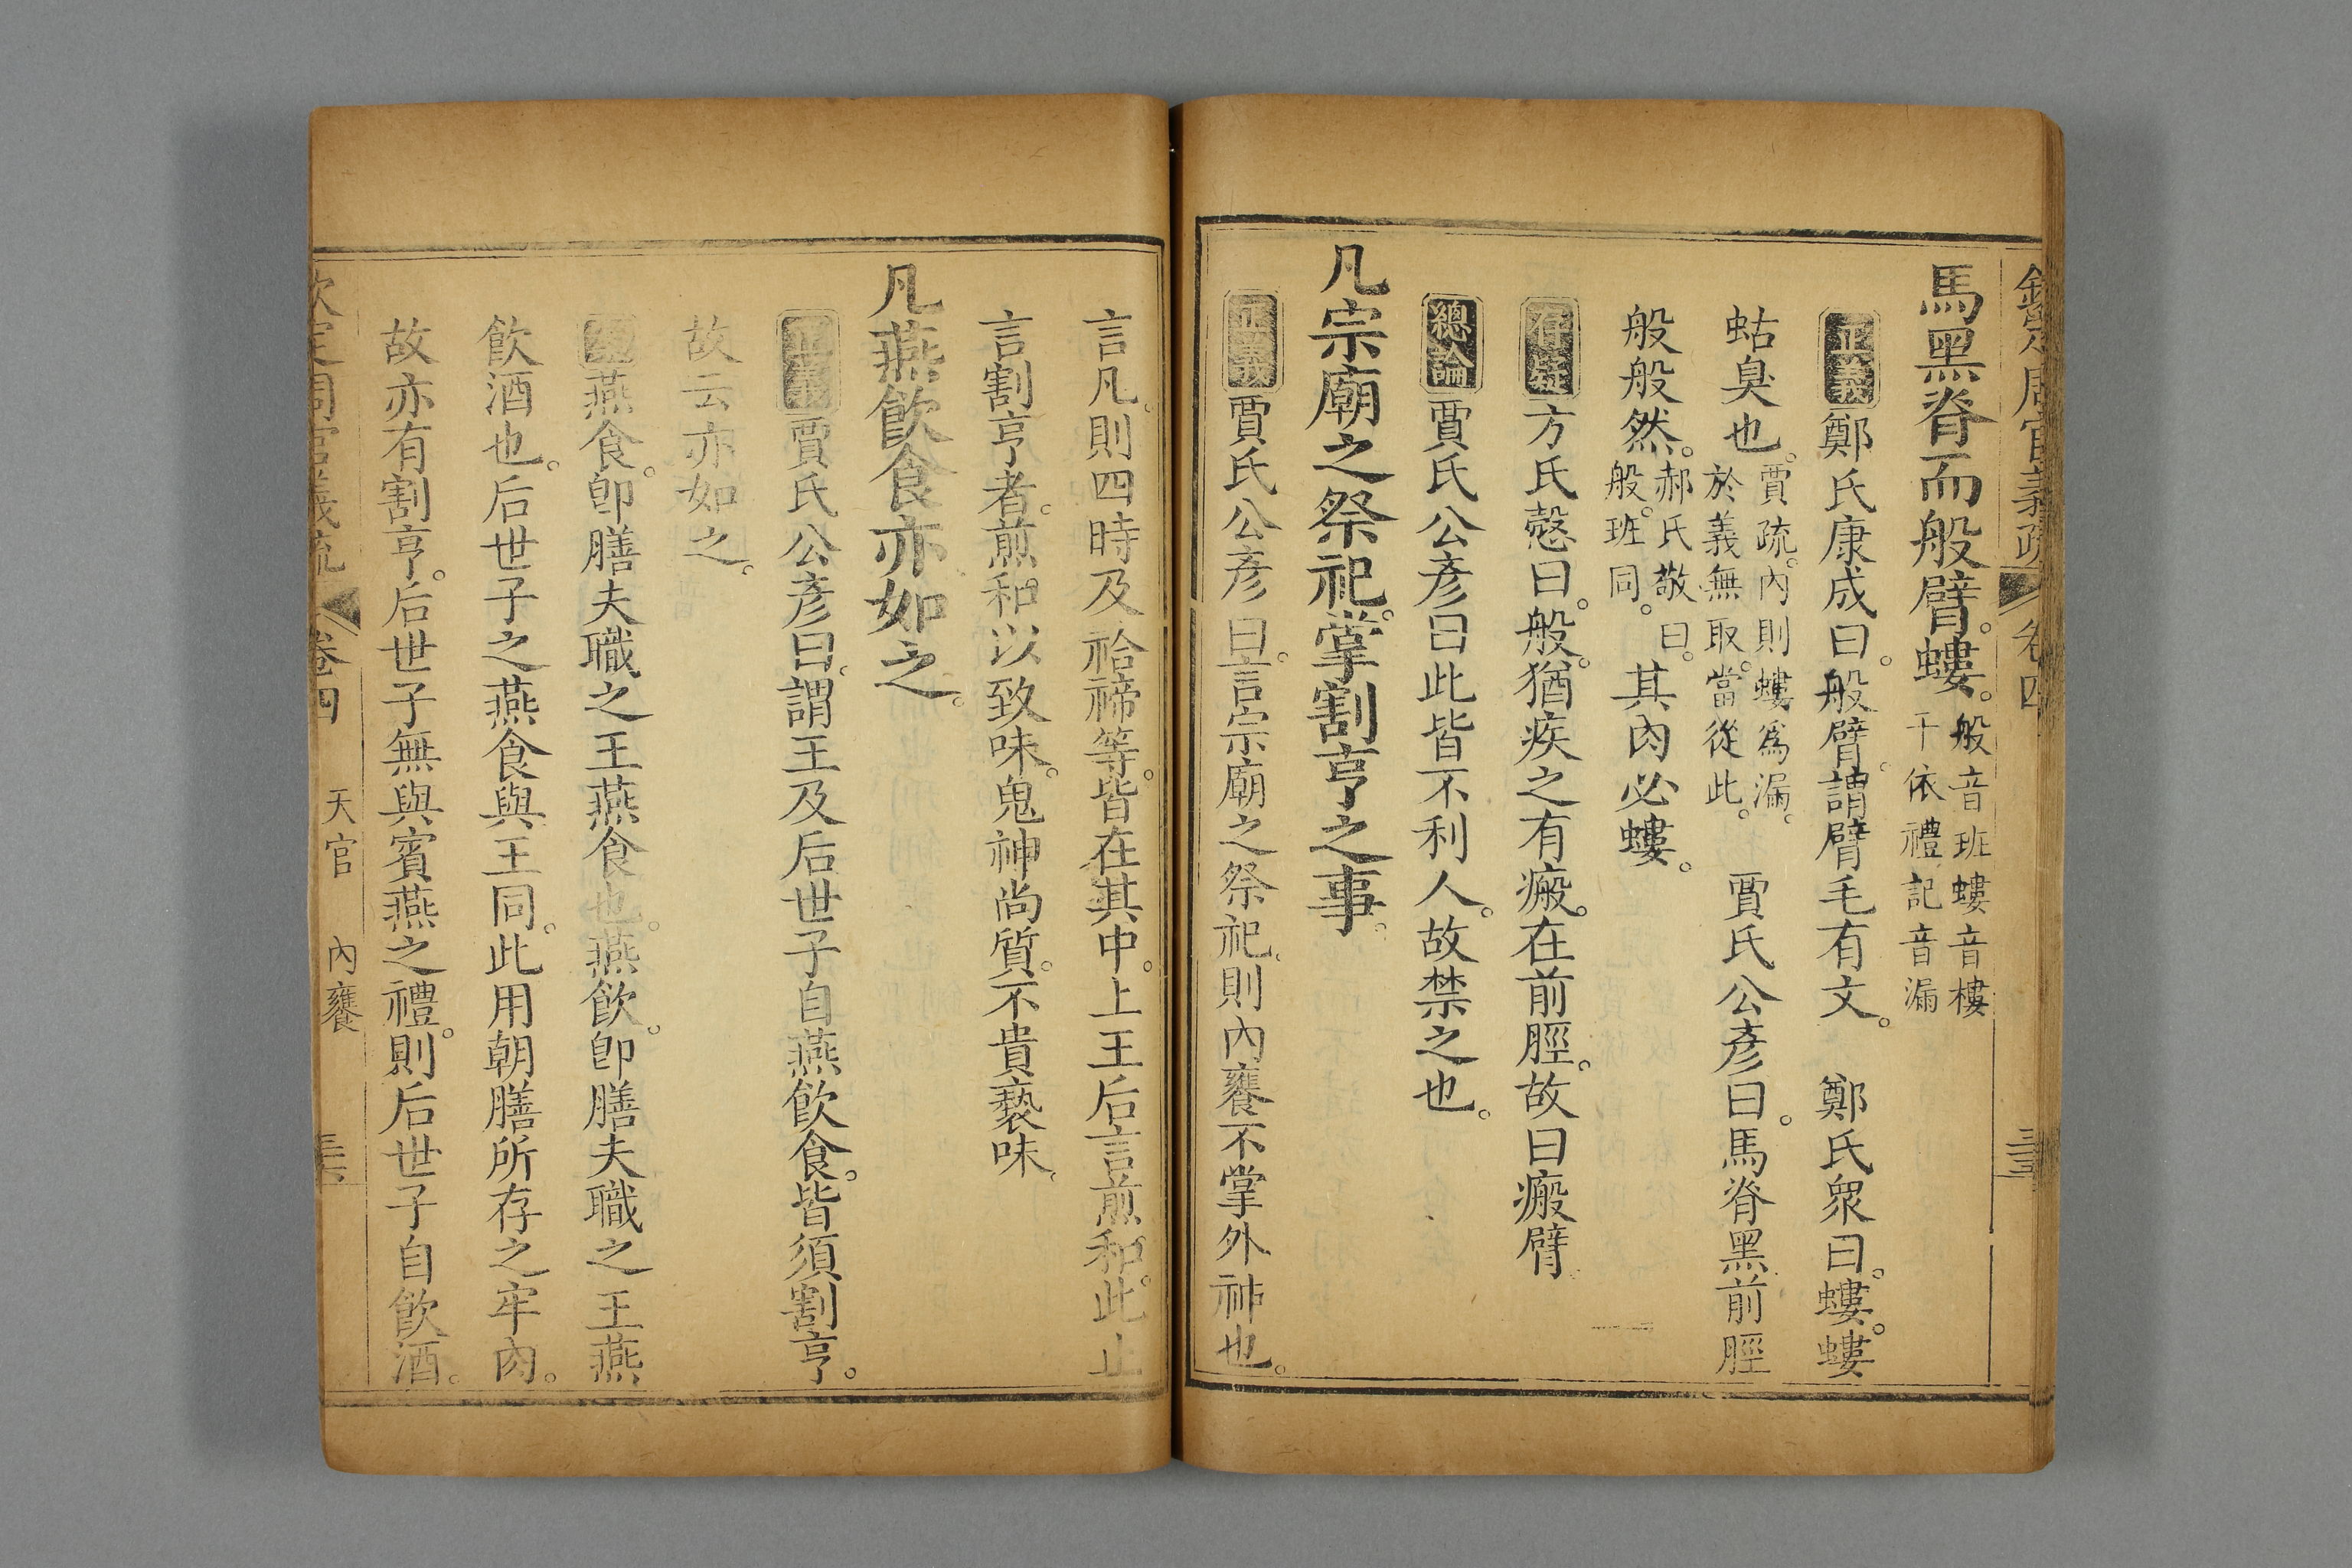 欽定周官義疏 卷四
馬黑脊而般臂螻。般音班螻音樓
干依禮記音漏
正義鄭氏康成曰。般臂。謂臂毛有文。 鄭氏衆曰。螻。螻
蛄臭也。賈疏。內則螻爲漏。
於義無取。當從此。 賈氏公彥曰。馬脊黑前脛
般般然。郝氏敬曰。
般。班同。其肉必螻。
存疑方氏慤曰。般。猶疾之有瘢。在前脛。故曰瘢臂
總論賈氏公彥曰此皆不利人。故禁之也。
凡宗廟之祭祀。掌割亨之事。
正義賈氏公彥曰。言宗廟之祭祀。則內饔不掌外神也。
言凡。則四時及祫禘等。皆在其中。上王后言煎和。此止
言割亨者。煎和以致味。鬼神尚質。不貴褻味。
凡燕飲食亦如之。
正義賈氏公彥曰。謂王及后世子自燕飲食。皆須割亨。
故云亦如之。
燕食。卽膳夫職之王燕食也。燕飲。卽膳夫職之王燕
飲酒也。后世子之燕食與王同。此用朝膳所存之牢肉。
故亦有割亨。后世子無與賓燕之禮。則后世子自飲酒。
欽定周官義疏 卷四 天官 內饔